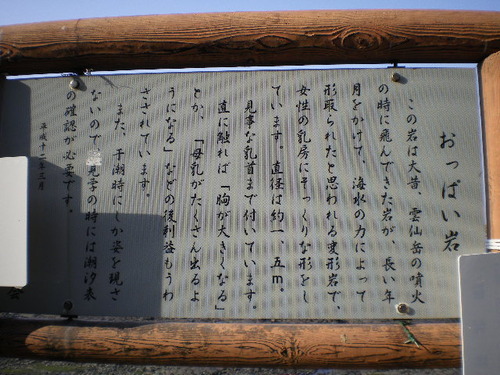 おっぱい岩
この岩は大昔、雲仙岳の噴火
の時に飛んできた岩が、長い年
月をかけて、海水の力によって
形取られたと思われる変形岩で、
女性の乳房にそっくりな形をし
ています。直径は約一、五m。
見事な乳首まで付いています。
直に触れば「胸が大きくなる」
とか、「母乳がたくさん出るよ
うになる」などの後利益もうわ
さされています。
また、干潮時にしか姿を現さ
ないので、見学の時には潮汐表
の確認が必要です。
平成十二年三月
会